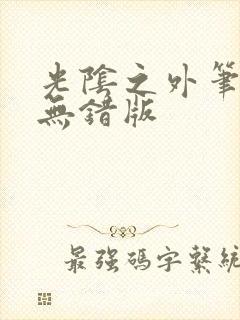 光陰之外筆
無錯版
最強碼字繫統